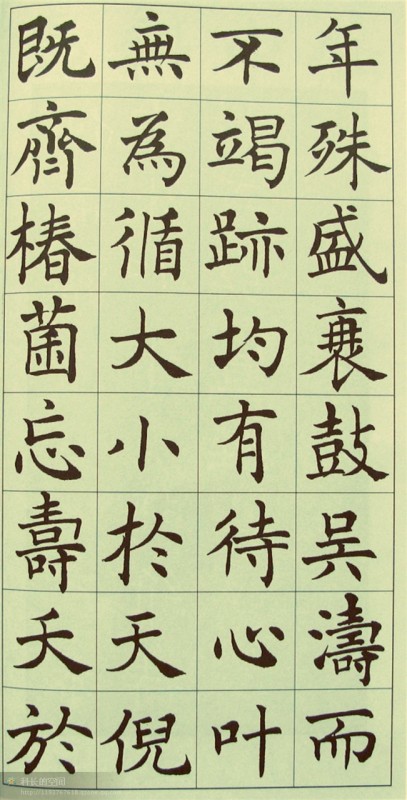 年殊盛衰鼓吴濤而
不竭跡均有待心叶
無為循大小於天倪
既齊椿菌忘壽夭於
科长的空间